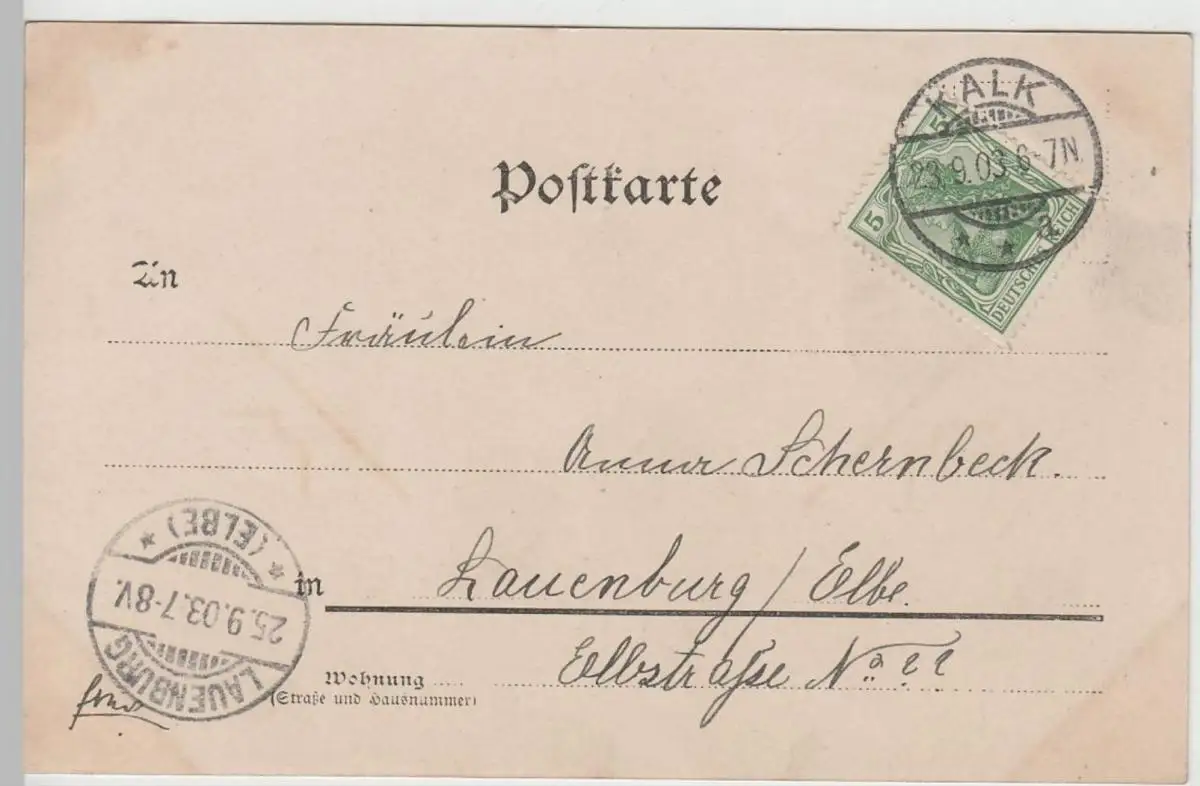 KALK
23.9.03.6-7N.
* * a
5
5
DEUTSCHES REICH
Postkarte
An
Fräulein
Anna Schernbeck.
in Lauenburg / Elbe.
Wohnung Elbstraße No
(Straße und Hausnummer)
LAUENBURG
25.9.03.7-8V.
* (ELBE) *